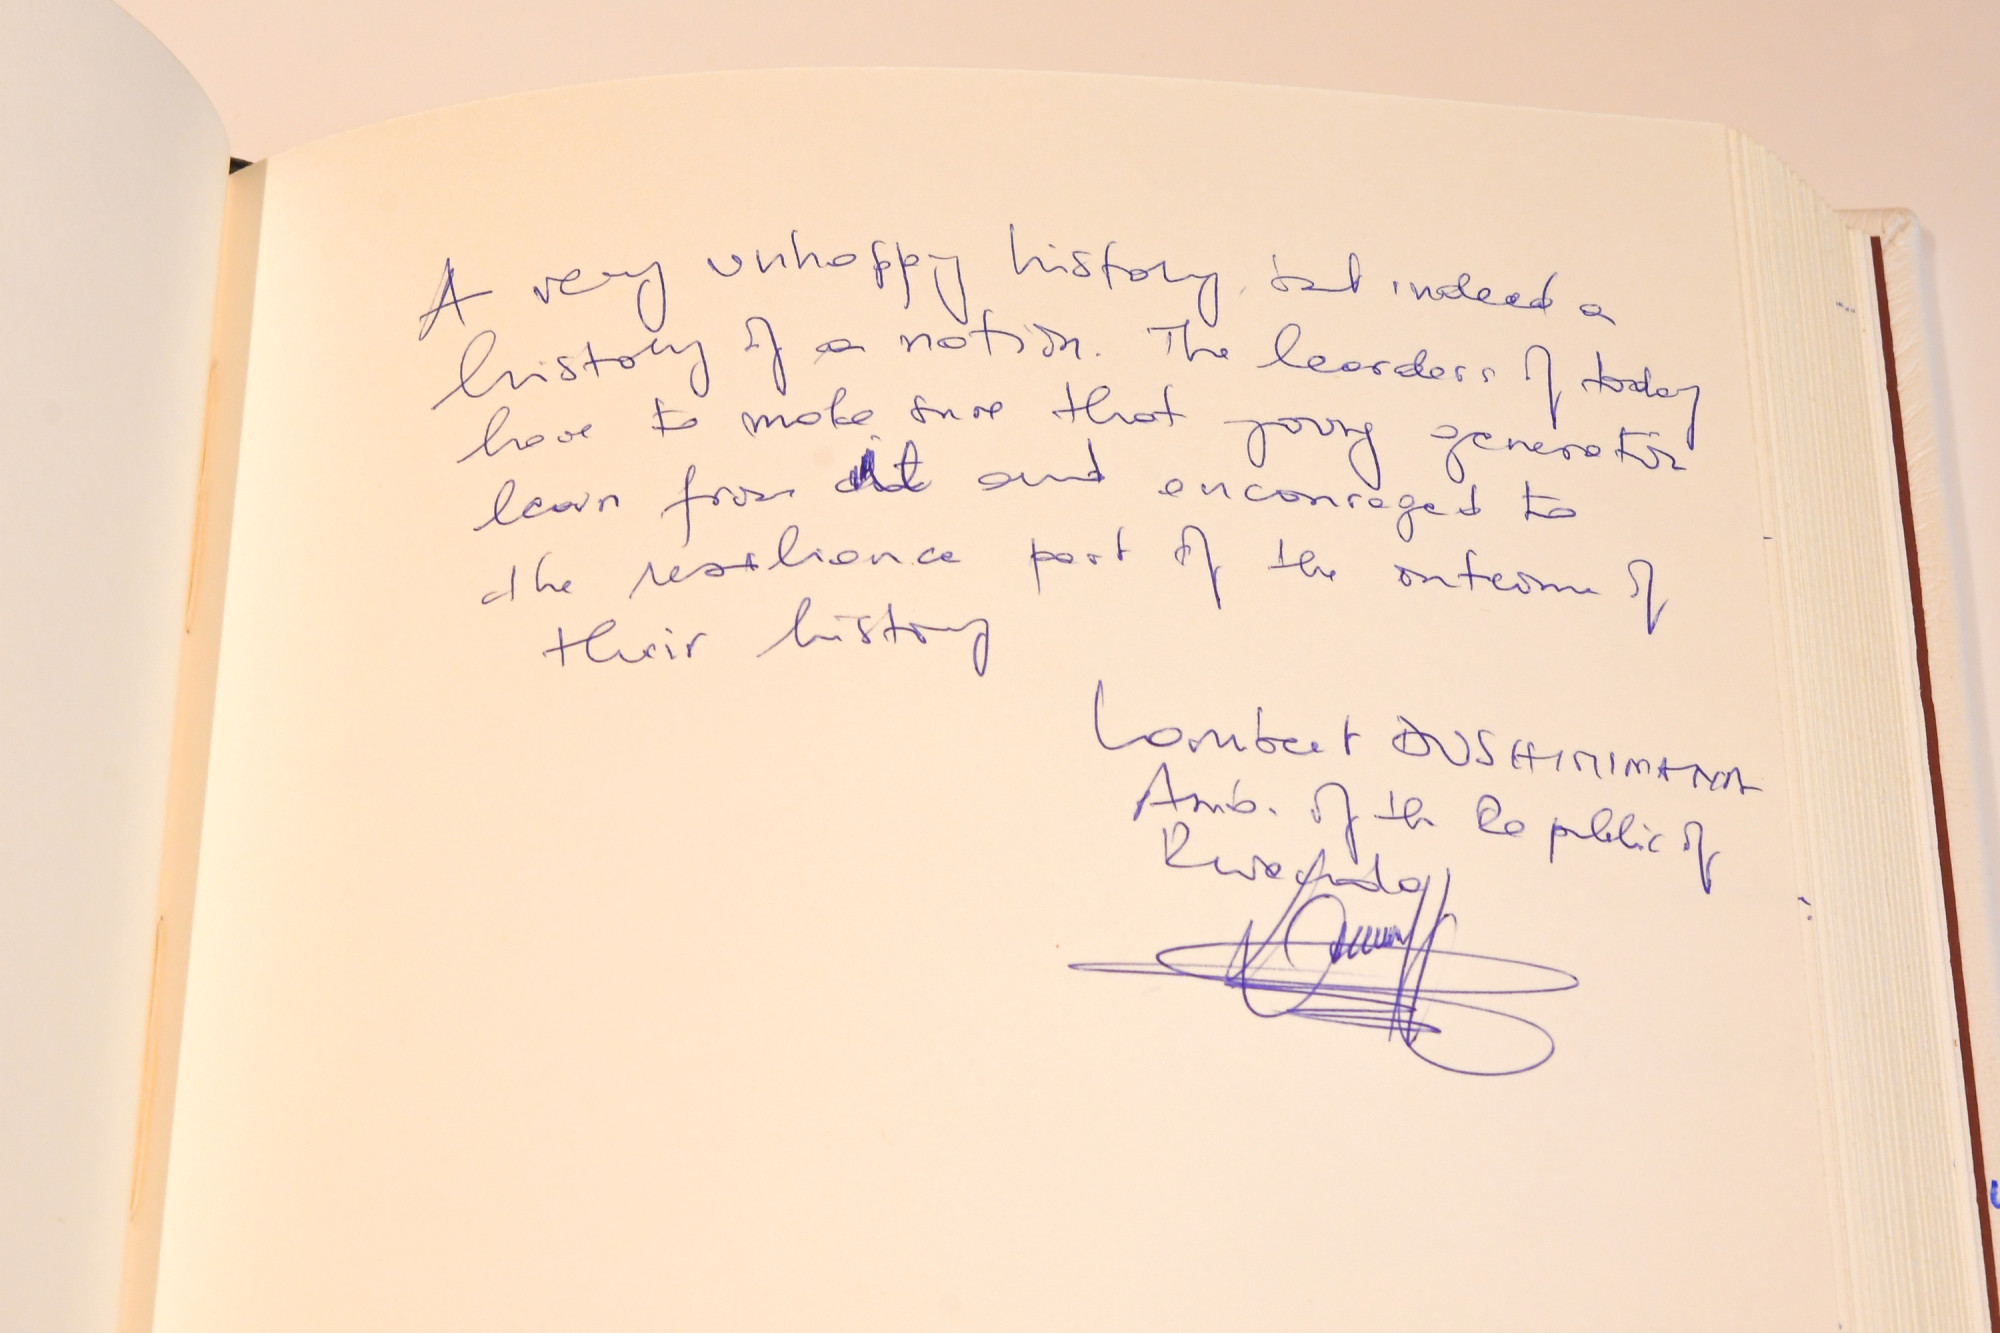 A very unhappy history, but indeed a
history of a nation. The learders of today
have to make sure that young generation
learn from it and encouraged to
the resilience part of the outcome of
their history
Lambert DUSHIMIMANA
Amb. of the Republic of
Rwanda